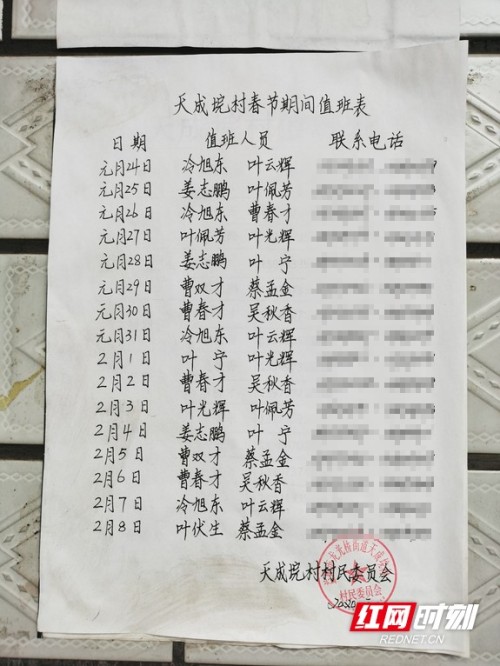 天成垸村春节期间值班表
日期 值班人员 联系电话
元月24日 冷旭东 叶云辉
元月25日 姜志鹏 叶佩芳
元月26日 冷旭东 曹春才
元月27日 叶佩芳 叶光辉
元月28日 姜志鹏 叶宁
元月29日 曹双才 蔡孟金
元月30日 曹春才 吴秋香
元月31日 冷旭东 叶云辉
2月1日 叶宁 叶光辉
2月2日 曹春才 吴秋香
2月3日 叶光辉 叶佩芳
2月4日 姜志鹏 叶宁
2月5日 曹双才 蔡孟金
2月6日 曹春才 吴秋香
2月7日 冷旭东 叶云辉
2月8日 叶伏生 蔡孟金
天成垸村村民委员会
村民委员会
红网时刻
REDNET.CN